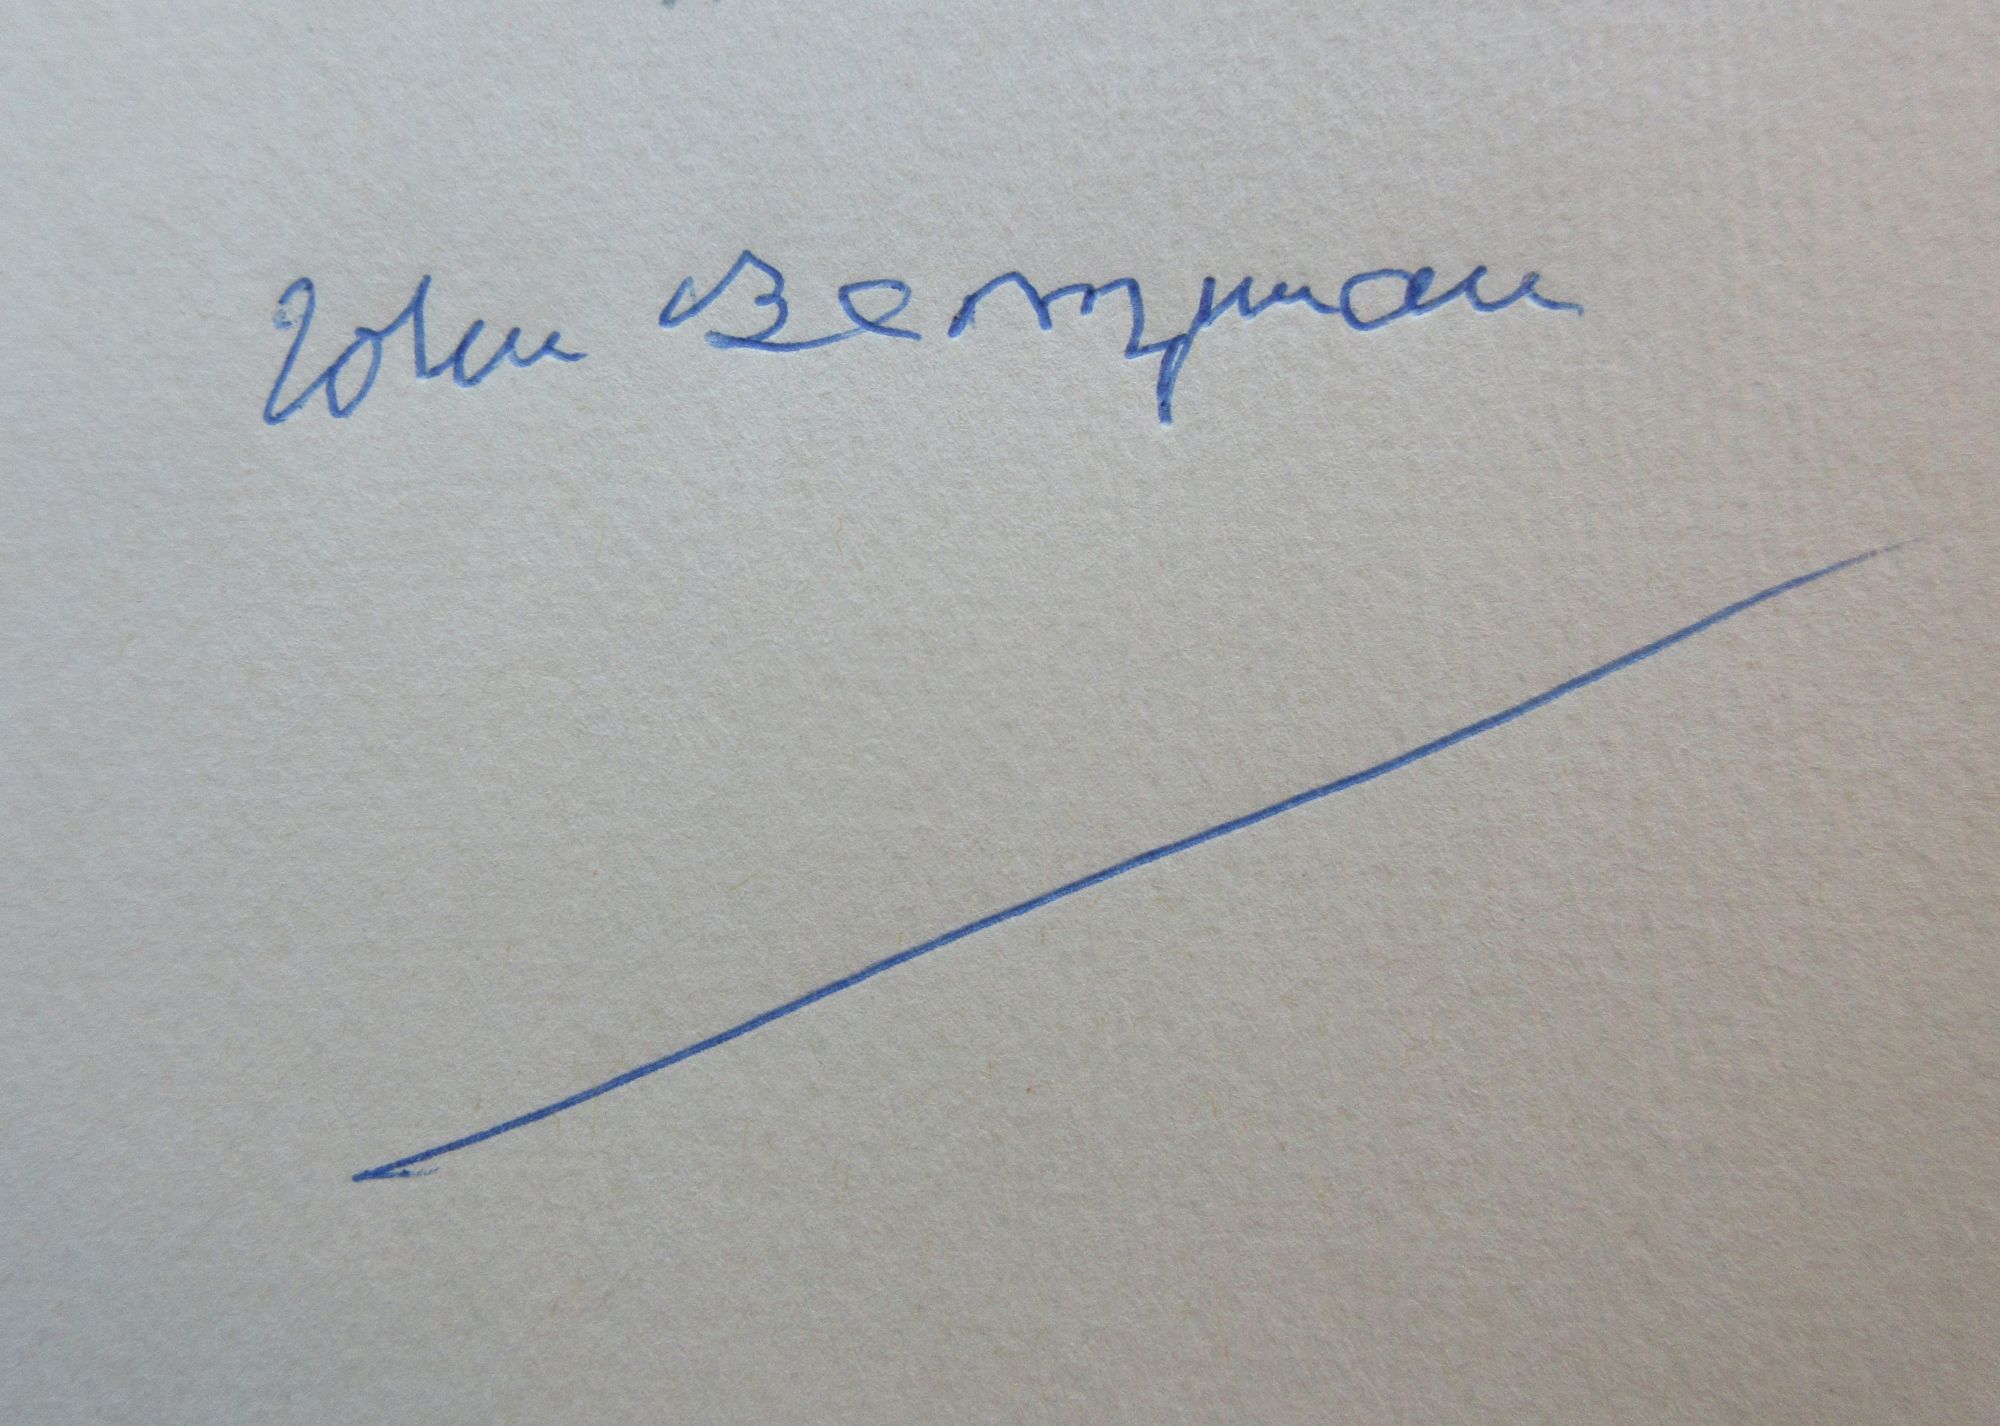 John Berryman